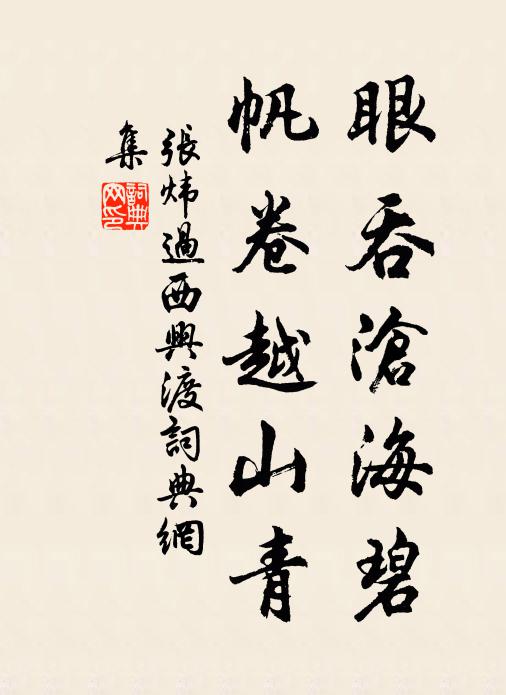 眼吞滄海碧
帆卷越山青
張炜過西興渡詞典網
集
詞典
网印